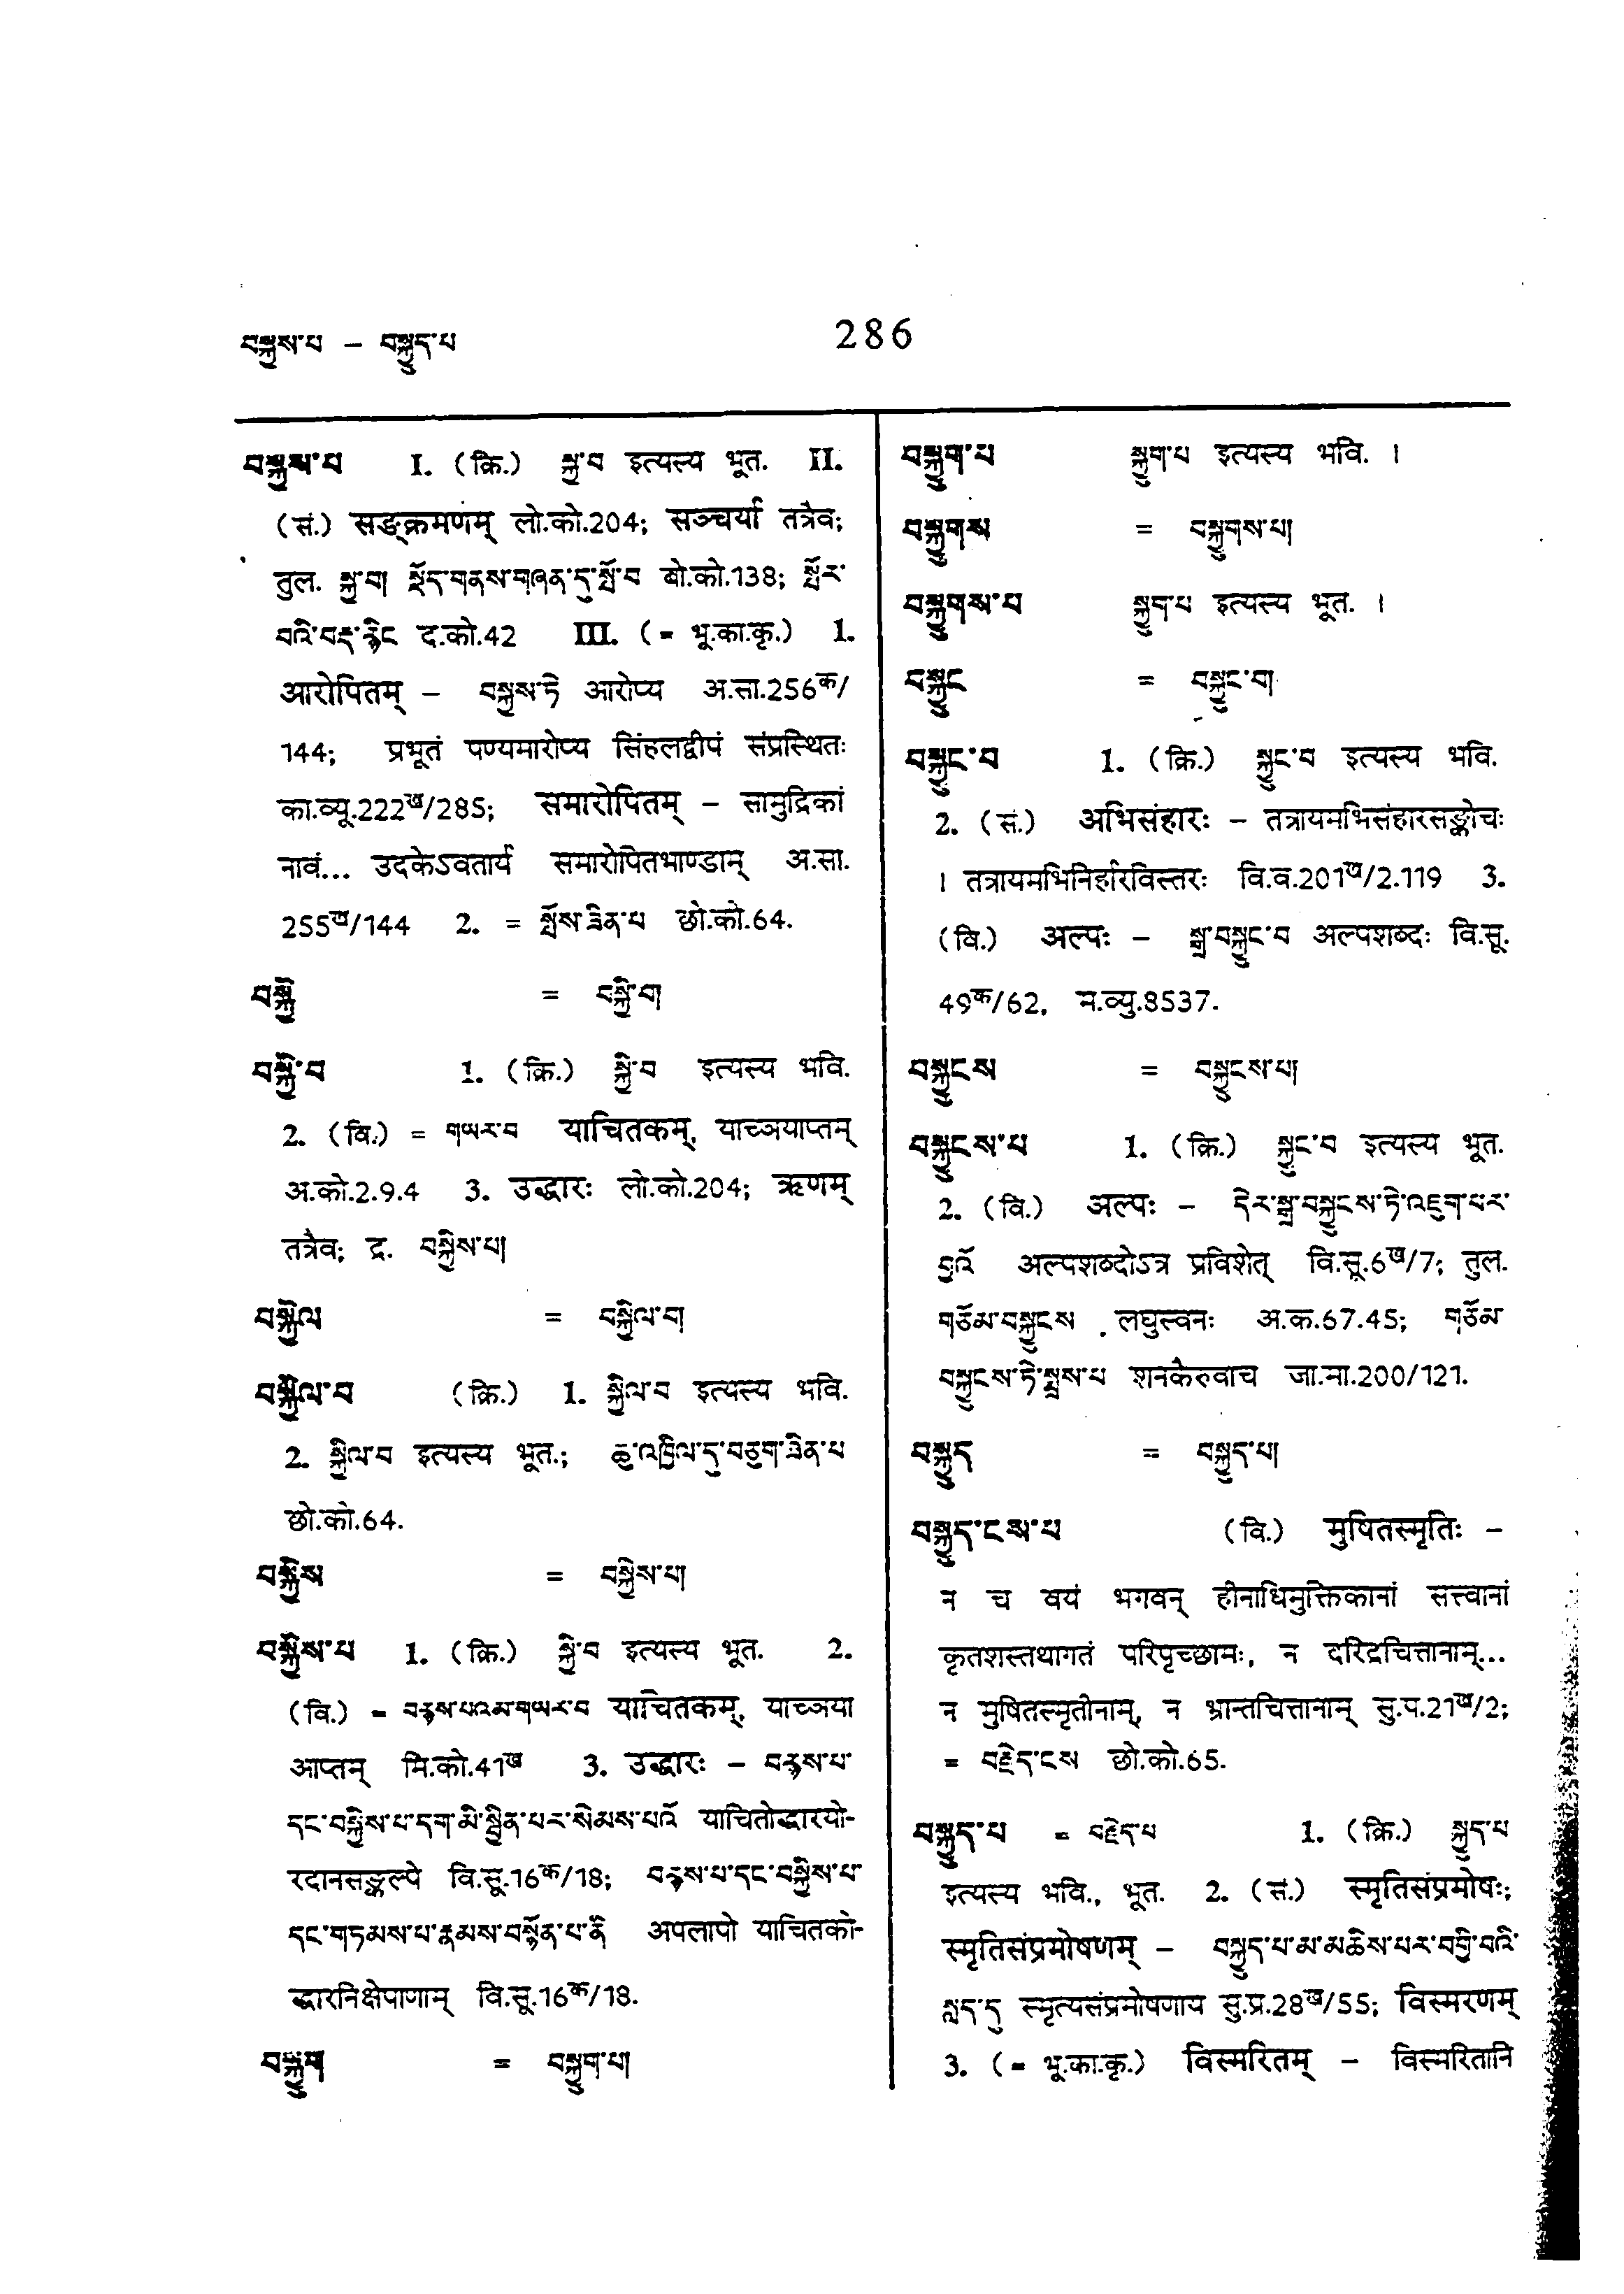 བསྐྱས་པ – བསྐྱུད་པ
286
བསྐྱས་པ I. (क्रि.) སྐྱ་བ इत्यस्य भूत. II.
(सं.) सङ्क्रमणम् लो.को.204; सञ्चर्या तत्रैव;
तुल. སྐྱ་བ། སྡོད་གནས་གཞན་དུ་སྤོ་བ बो.को.138; སྤོར་
བའི་བརྡ་རྙིང द.को.42 III. (= भू.का.कृ.) 1.
आरोपितम् – བསྐྱས་ཏེ आरोप्य अ.सा.256क/
144; प्रभूतं पण्यमारोप्य सिंहलद्वीपं संप्रस्थितः
का.व्यू.222ख/285; समारोपितम् – सामुद्रिकां
नावं... उदकेऽवतार्य समारोपितभाण्डाम् अ.सा.
255ख/144 2. = སྤོས་ཟིན་པ छो.को.64.
བསྐྱི = བསྐྱི་བ།
བསྐྱི་བ 1. (क्रि.) སྐྱི་བ इत्यस्य भवि.
2. (वि.) = གཡར་བ याचितकम्, याच्ञयाप्तम्
अ.को.2.9.4 3. उद्धारः लो.को.204; ऋणम्
तत्रैव; द्र. བསྐྱིས་པ།
བསྐྱིལ = བསྐྱིལ་བ།
བསྐྱིལ་བ (क्रि.) 1. སྐྱིལ་བ इत्यस्य भवि.
2. སྐྱིལ་བ इत्यस्य भूत.; ཆུ་འཁྱིལ་དུ་བཅུག་ཟིན་པ
छो.को.64.
བསྐྱིས = བསྐྱིས་པ།
བསྐྱིས་པ 1. (क्रि.) སྐྱི་བ इत्यस्य भूत. 2.
(वि.) = བརྙས་པའམ་གཡར་བ याचितकम्, याच्ञया
आप्तम् मि.को.41ख 3. उद्धारः – བརྙས་པ་
དང་བསྐྱིས་པ་དག་མི་སྦྱིན་པར་སེམས་པའོ याचितोद्धारयो-
रदानसङ्कल्पे वि.सू.16क/18; བརྙས་པ་དང་བསྐྱིས་པ་
དང་གཏམས་པ་རྣམས་བསྙོན་པ་ནི अपलापो याचितको-
द्धारनिक्षेपाणाम् वि.सू.16क/18.
བསྐྱུག = བསྐྱུག་པ།
བསྐྱུག་པ སྐྱུག་པ इत्यस्य भवि. ।
བསྐྱུགས = བསྐྱུགས་པ།
བསྐྱུགས་པ སྐྱུག་པ इत्यस्य भूत. ।
བསྐྱུང = བསྐྱུང་བ།
བསྐྱུང་བ 1. (क्रि.) སྐྱུང་བ इत्यस्य भवि.
2. (सं.) अभिसंहारः – तत्रायमभिसंहारसङ्कोचः
। तत्रायमभिनिर्हारविस्तरः वि.व.201ख/2.119 3.
(वि.) अल्पः – སྒྲ་བསྐྱུང་བ अल्पशब्दः वि.सू.
49क/62, म.व्यु.8537.
བསྐྱུངས = བསྐྱུངས་པ།
བསྐྱུངས་པ 1. (क्रि.) སྐྱུང་བ इत्यस्य भूत.
2. (वि.) अल्पः – དེར་སྒྲ་བསྐྱུངས་ཏེ་འཇུག་པར་
བྱའོ अल्पशब्दोऽत्र प्रविशेत् वि.सू.6ख/7; तुल.
གཅོམ་བསྐྱུངས लघुस्वनः अ.क.67.45; གཅོམ་
བསྐྱུངས་ཏེ་སྨྲས་པ शनकैरुवाच जा.मा.200/121.
བསྐྱུད = བསྐྱུད་པ།
བསྐྱུད་ངས་པ (वि.) मुषितस्मृतिः –
न च वयं भगवन् हीनाधिमुक्तिकानां सत्त्वानां
कृतशस्तथागतं परिपृच्छामः, न दरिद्रचित्तानाम्...
न मुषितस्मृतीनाम्, न भ्रान्तचित्तानाम् सु.प.21ख/2;
= བརྗེད་ངས छो.को.65.
བསྐྱུད་པ = བརྗེད་པ 1. (क्रि.) སྐྱུད་པ
इत्यस्य भवि., भूत. 2. (सं.) स्मृतिसंप्रमोषः;
स्मृतिसंप्रमोषणम् – བསྐྱུད་པ་མ་མཆིས་པར་བགྱི་བའི་
སླད་དུ स्मृत्यसंप्रमोषणाय सु.प्र.28ख/55; विस्मरणम्
3. (= भू.का.कृ.) विस्मरितम् – विस्मरितानि